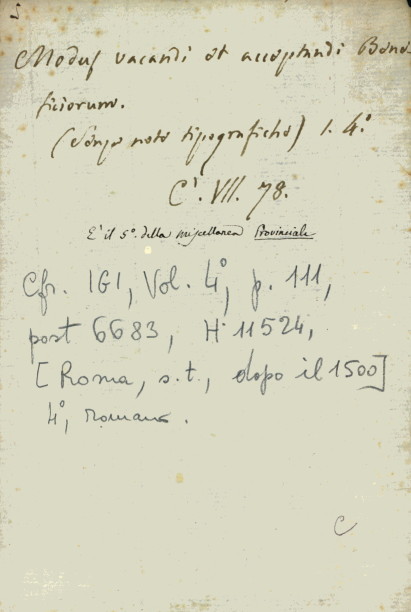 5
Modus vacandi et acceptandi Bene
ficiorum.
(Senza note tipografiche) 1. 4.º
C'. VII. 78.
E' il 5º. della miscellanea Provinciale
Cfr. IGI, Vol. 4º, p. 111,
post 6683, H 11524,
[Roma, s.t., dopo il 1500]
4º, romano.
C